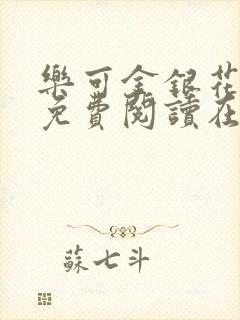 樂可金銀花
免費閱讀在
蘇七斗